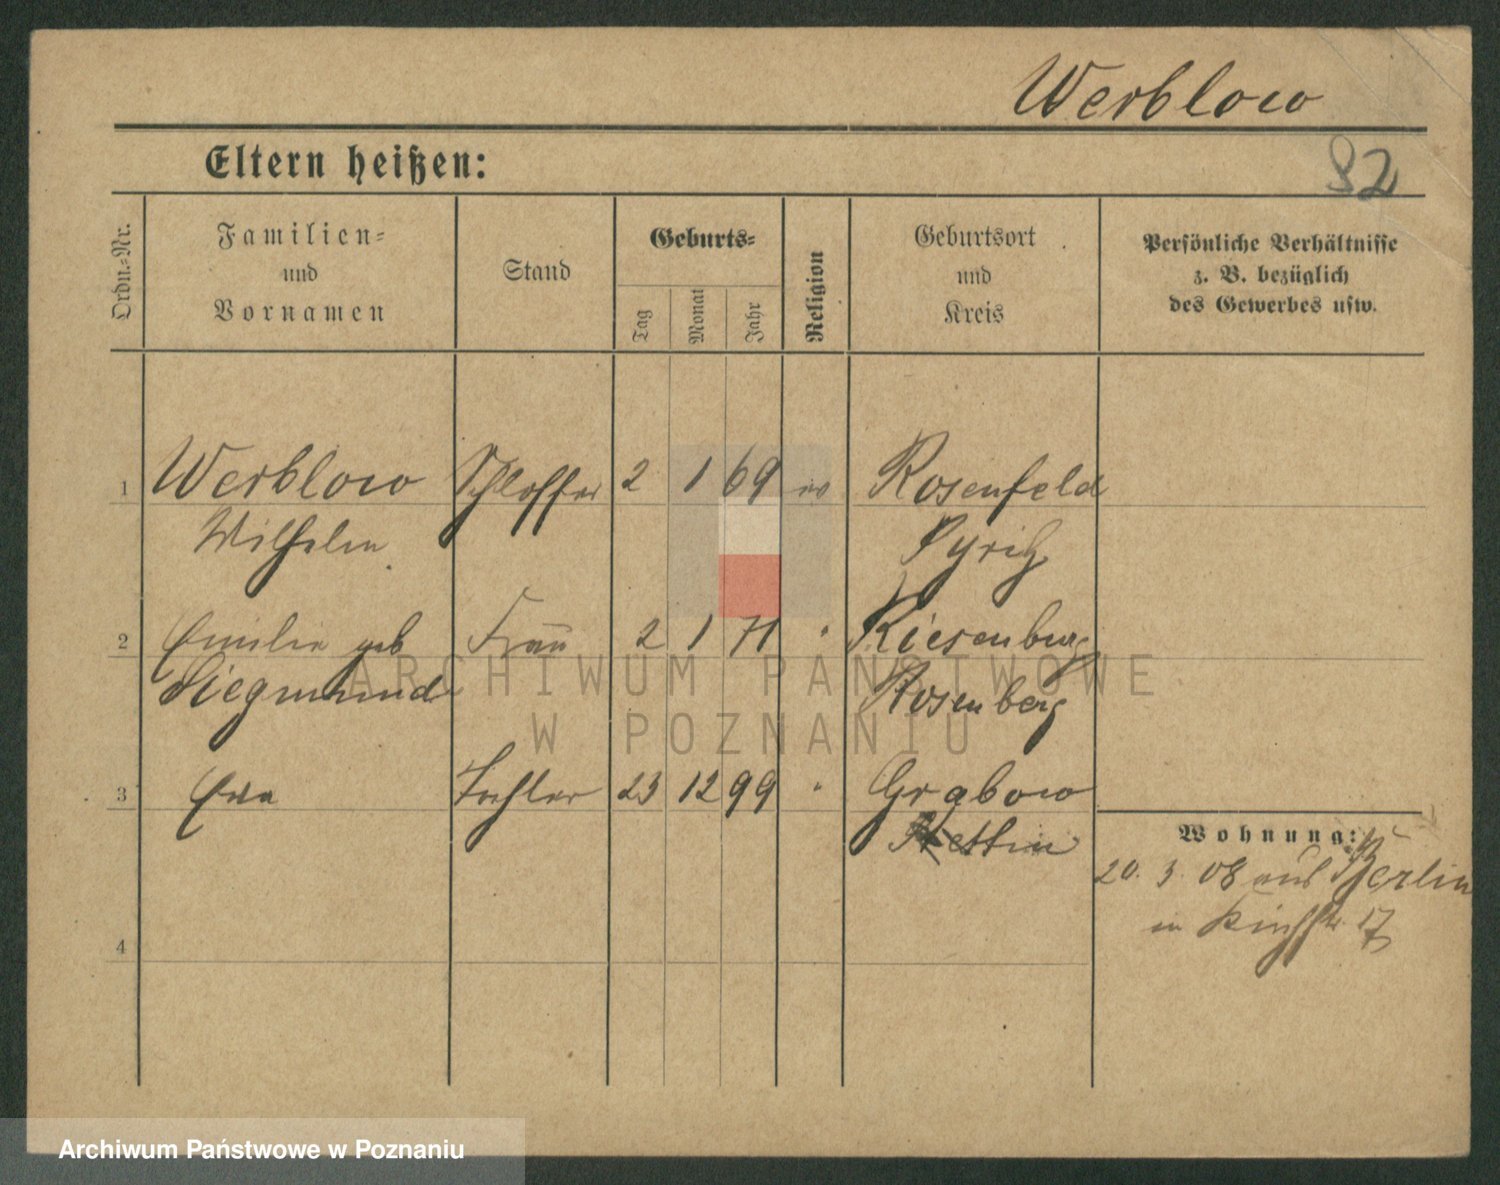 Werblow
Eltern heißen:
92
Ordn.-Nr.
Familien-
und
Vornamen
Stand
Geburts-
Tag
Monat
Jahr
Religion
Geburtsort
und
Kreis
Persönliche Verhältnisse
z. B. bezüglich
des Gewerbes usw.
1 Werblow Schlosser 2 1 69 ev Rosenfeld
Wilhelm Pyritz
2 Emilie geb Frau 2 1 71 " Riesenburg
Siegmund Rosenberg
3 Eva Tochter 23 12 99 " Grabow
Stettin
Wohnung:
20. 3. 08 aus Berlin
in Kirchstr. 17
4
ARCHIWUM PAŃSTWOWE
W POZNANIU
Archiwum Państwowe w Poznaniu